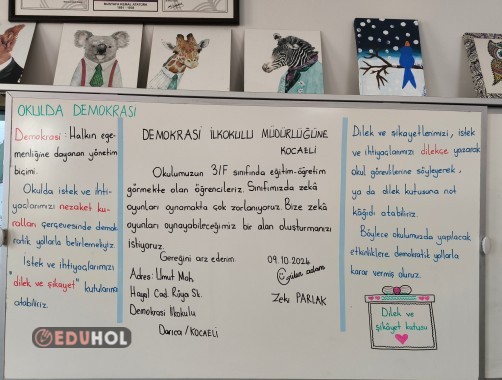 MUSTAFA KEMAL ATATÜRK
OKULDA DEMOKRASİ
Demokrasi: Halkın ege-
menliğine dayanan yönetim
biçimi.
Okulda istek ve ihti-
yaçlarımızı nezaket ku-
ralları çerçevesinde demok-
ratik yollarla belirlemeliyiz.
İstek ve ihtiyaçlarımızı
"dilek ve şikayet" kutularına
atabiliriz.
DEMOKRASİ İLKOKULU MÜDÜRLÜĞÜNE
KOCAELİ
Okulumuzun 3/F sınıfında eğitim-öğretim
görmekte olan öğrencileriz. Sınıfımızda zekâ
oyunları oynamakta çok zorlanıyoruz. Bize zekâ
oyunları oynayabileceğimiz bir alan oluşturmanızı
istiyoruz.
Gereğini arz ederim.
09.10.2024
Adres: Umut Mah.
Hayal Cad. Rüya Sk.
Zeki PARLAK
Demokrasi İlkokulu
Darıca/KOCAELİ
Dilek ve şikayetlerimizi, istek
ve ihtiyaçlarımızı dilekçe yazarak
okul görevlilerine söyleyerek,
ya da dilek kutusuna not
kâğıdı atabiliriz.
Böylece okulumuzda yapılacak
etkinliklere demokratik yollarla
karar vermiş oluruz.
Dilek ve
şikâyet kutusu
EDUHOL